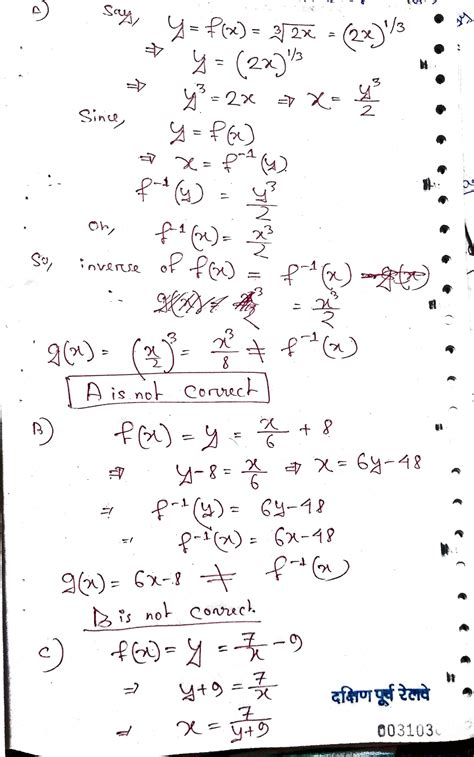 A) Say, y = f(x) = ∛2x = (2x)^1/3
⇒ y = (2x)^1/3
⇒ y³ = 2x ⇒ x = y³/2
Since, y = f(x)
⇒ x = f⁻¹(y)
∴ f⁻¹(y) = y³/2
or, f⁻¹(x) = x³/2
So, inverse of f(x) = f⁻¹(x)
= x³/2
g(x) = (x/2)³ = x³/8 ≠ f⁻¹(x)
A is not correct
B) f(x) = y = x/6 + 8
⇒ y-8 = x/6 ⇒ x = 6y-48
⇒ f⁻¹(y) = 6y-48
⇒ f⁻¹(x) = 6x-48
g(x) = 6x-8 ≠ f⁻¹(x)
B is not correct
C) f(x) = y = 7/x - 9
⇒ y+9 = 7/x
⇒ x = 7/y+9
दक्षिण पूर्व रेलवे
003103